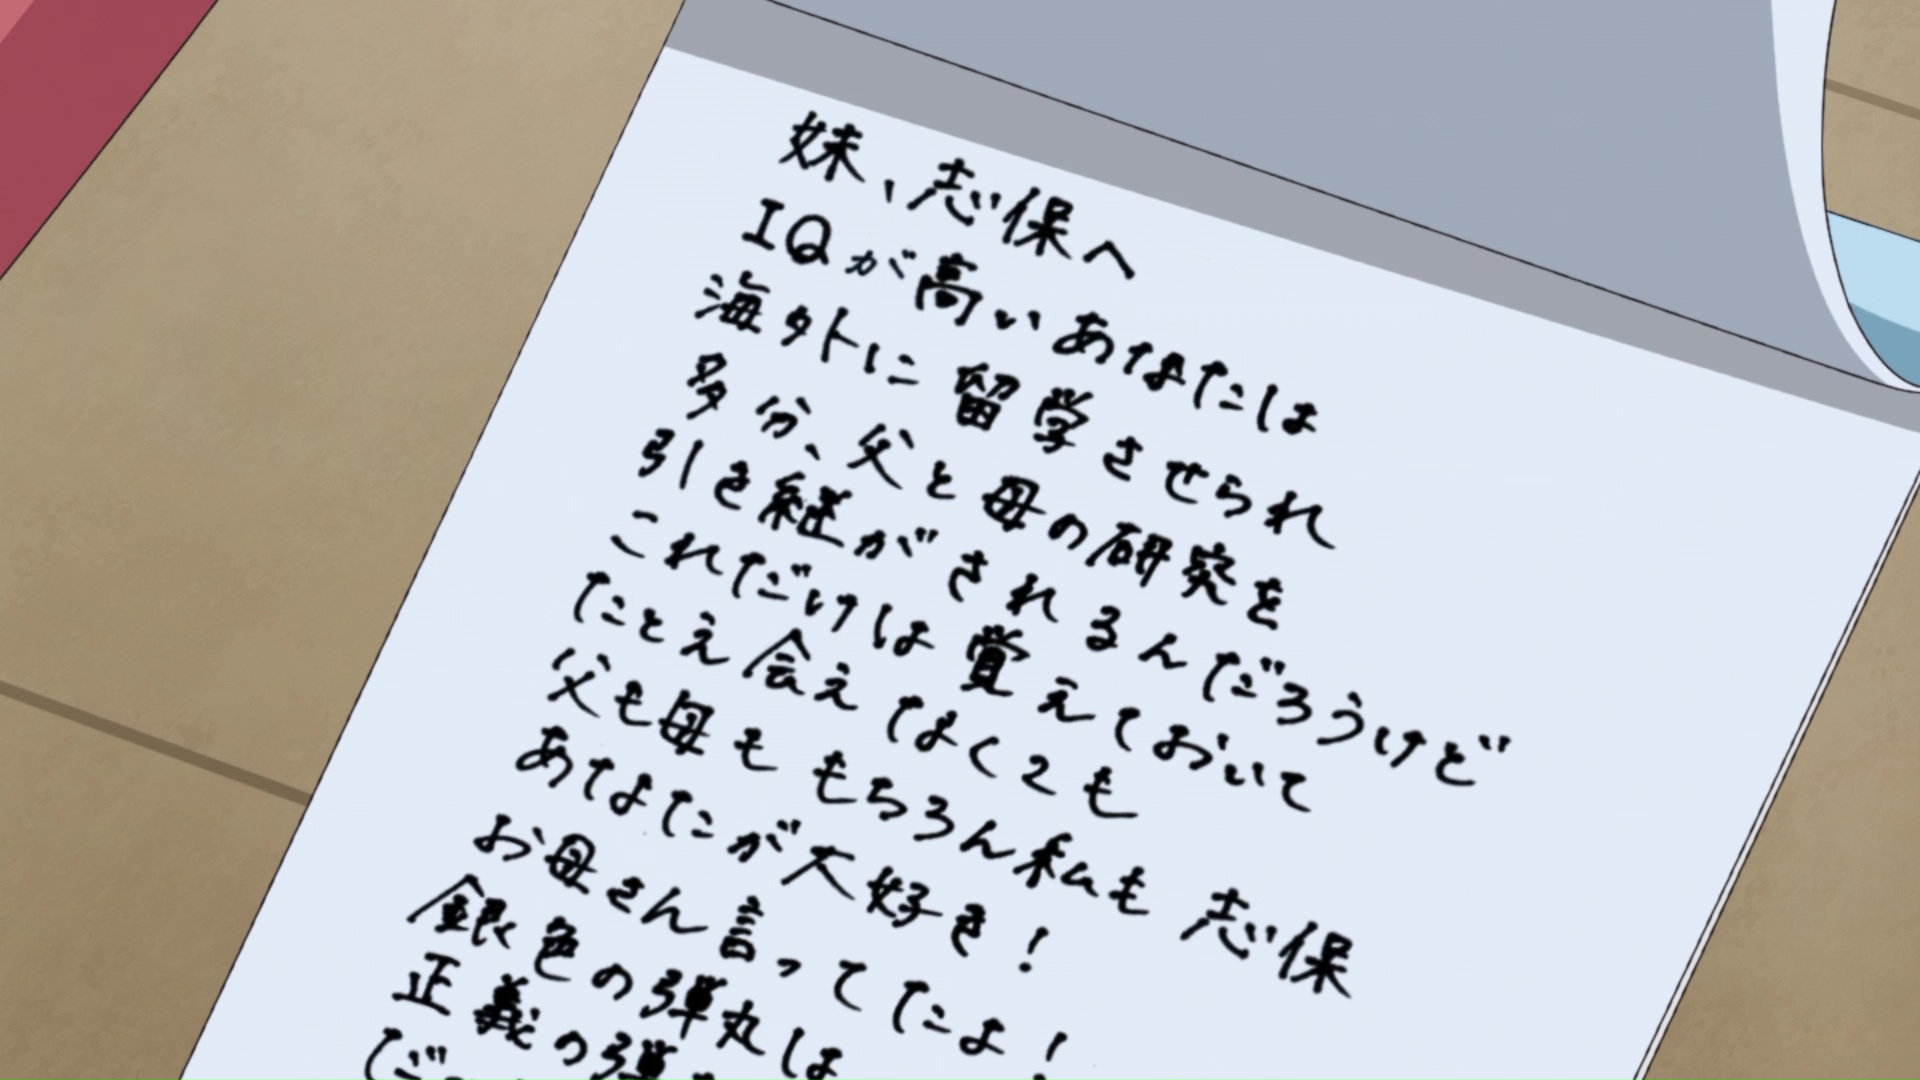 妹、志保へ
IQが高いあなたは
海外に留学させられ
多分、父と母の研究を
引き継がされるんだろうけど
これだけは覚えておいて
たとえ会えなくても
父も母ももちろん私も志保
あなたが大好き!
お母さん言ってたよ!
銀色の弾丸は
正義の弾